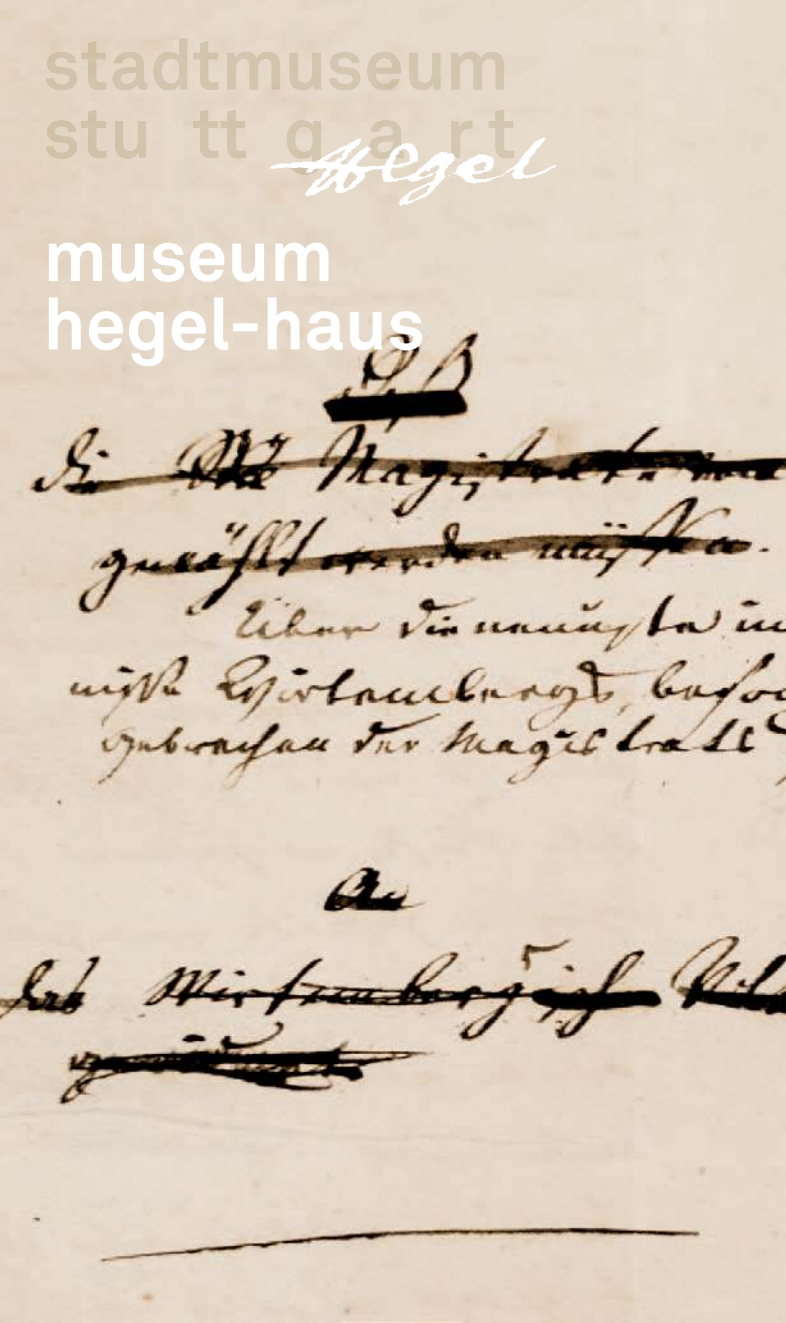 stadtmuseum
stuttgart
Hegel
museum
hegel-haus
Daß
die Magistrate von
gewählt werden müssen.
Über die neuesten in
nisse Wirtembergs, beson
gebrechen der Magistrats
An
das Wirtembergische Volk